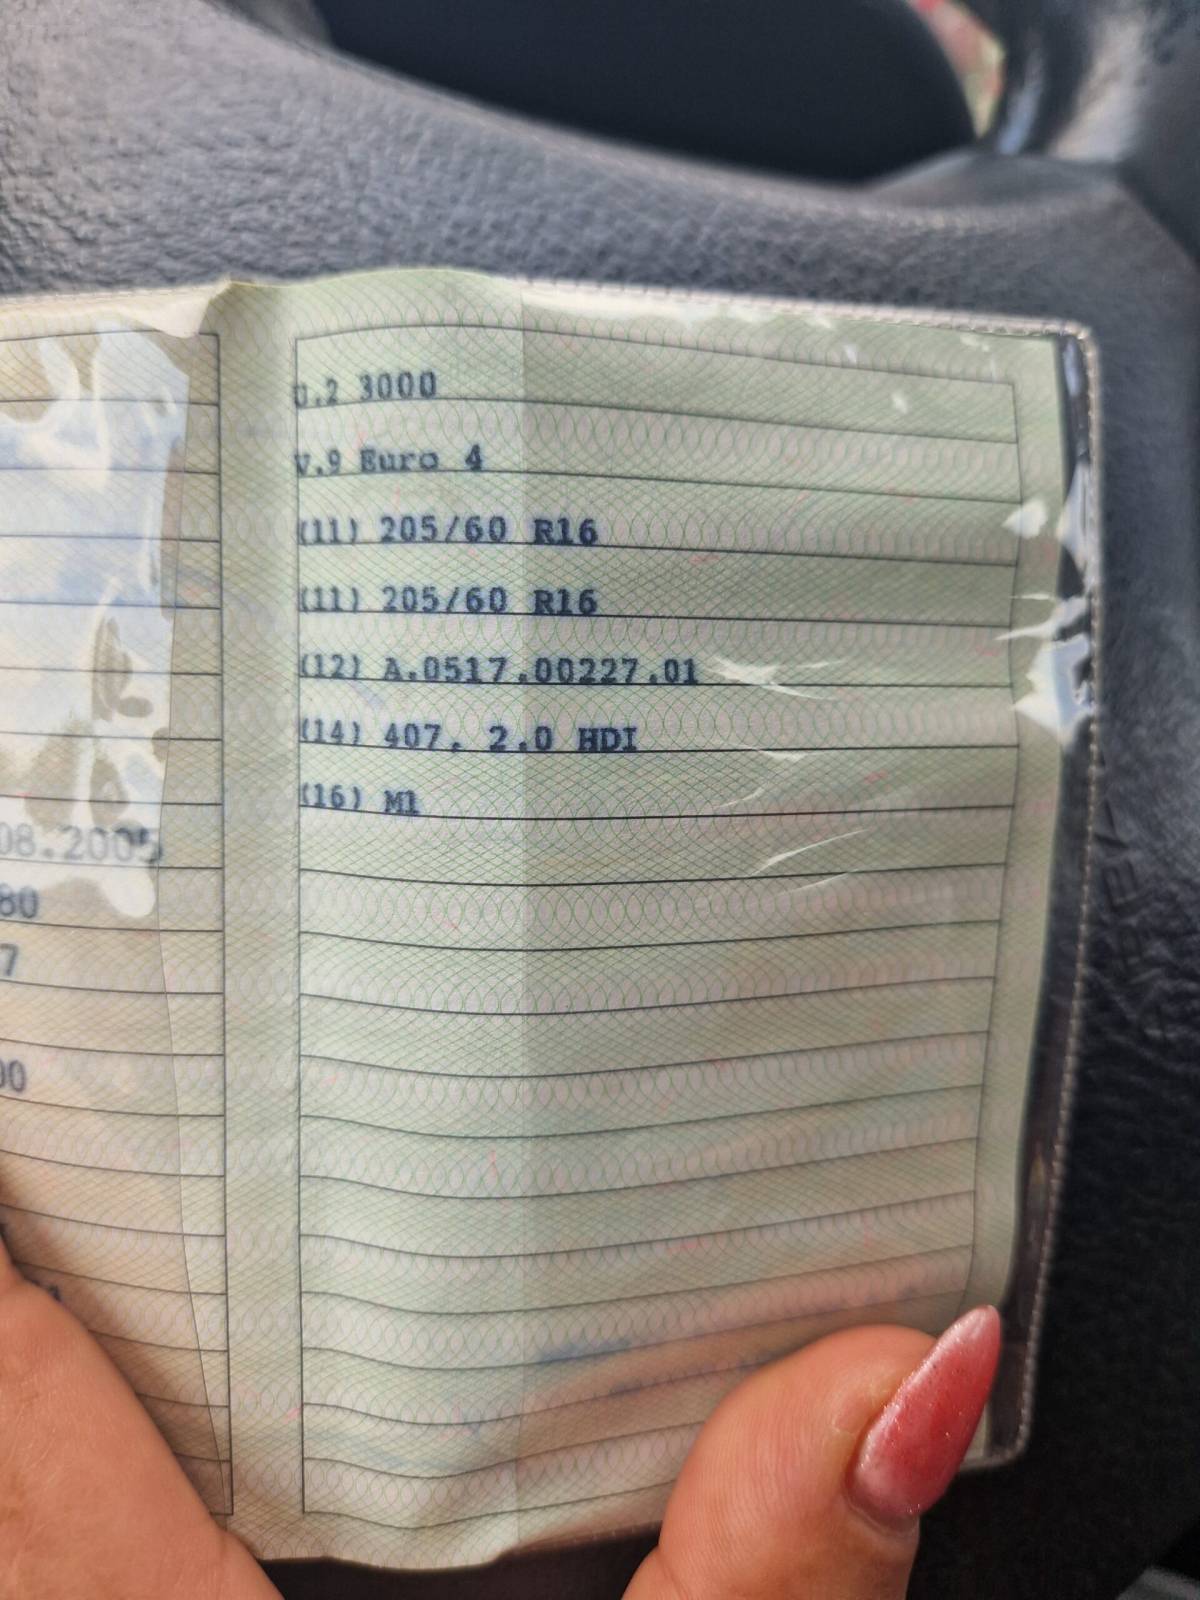 U.2 3000
V.9 Euro 4
(11) 205/60 R16
(11) 205/60 R16
(12) A.0517.00227.01
(14) 407, 2.0 HDI
(16) M1
08.2005
80
7
00